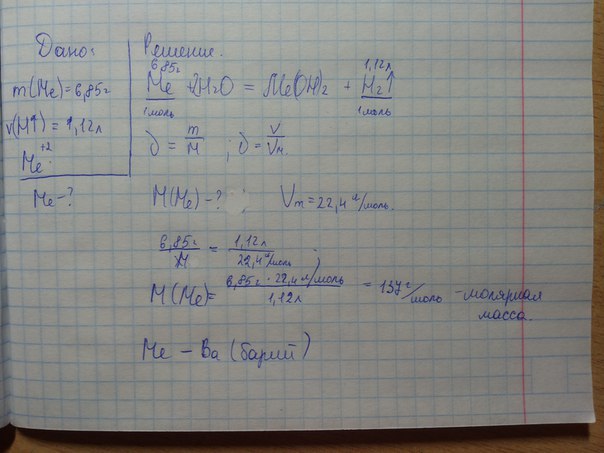 Дано:
m(Me)=6,85г
v(H↑)=1,12л
Me⁺²
Me-?
Решение.
6,85г 1,12л
Me + 2H₂O = Me(OH)₂ + H₂↑
1моль 1моль
ν = m/M ; ν = V/Vm
M(Me)-? ; Vm = 22,4 л/моль.
6,85г/M = 1,12л/22,4 л/моль ;
M(Me)= 6,85г · 22,4 л/моль / 1,12л = 137 г/моль - молярная
масса.
Me - Ba (барий)